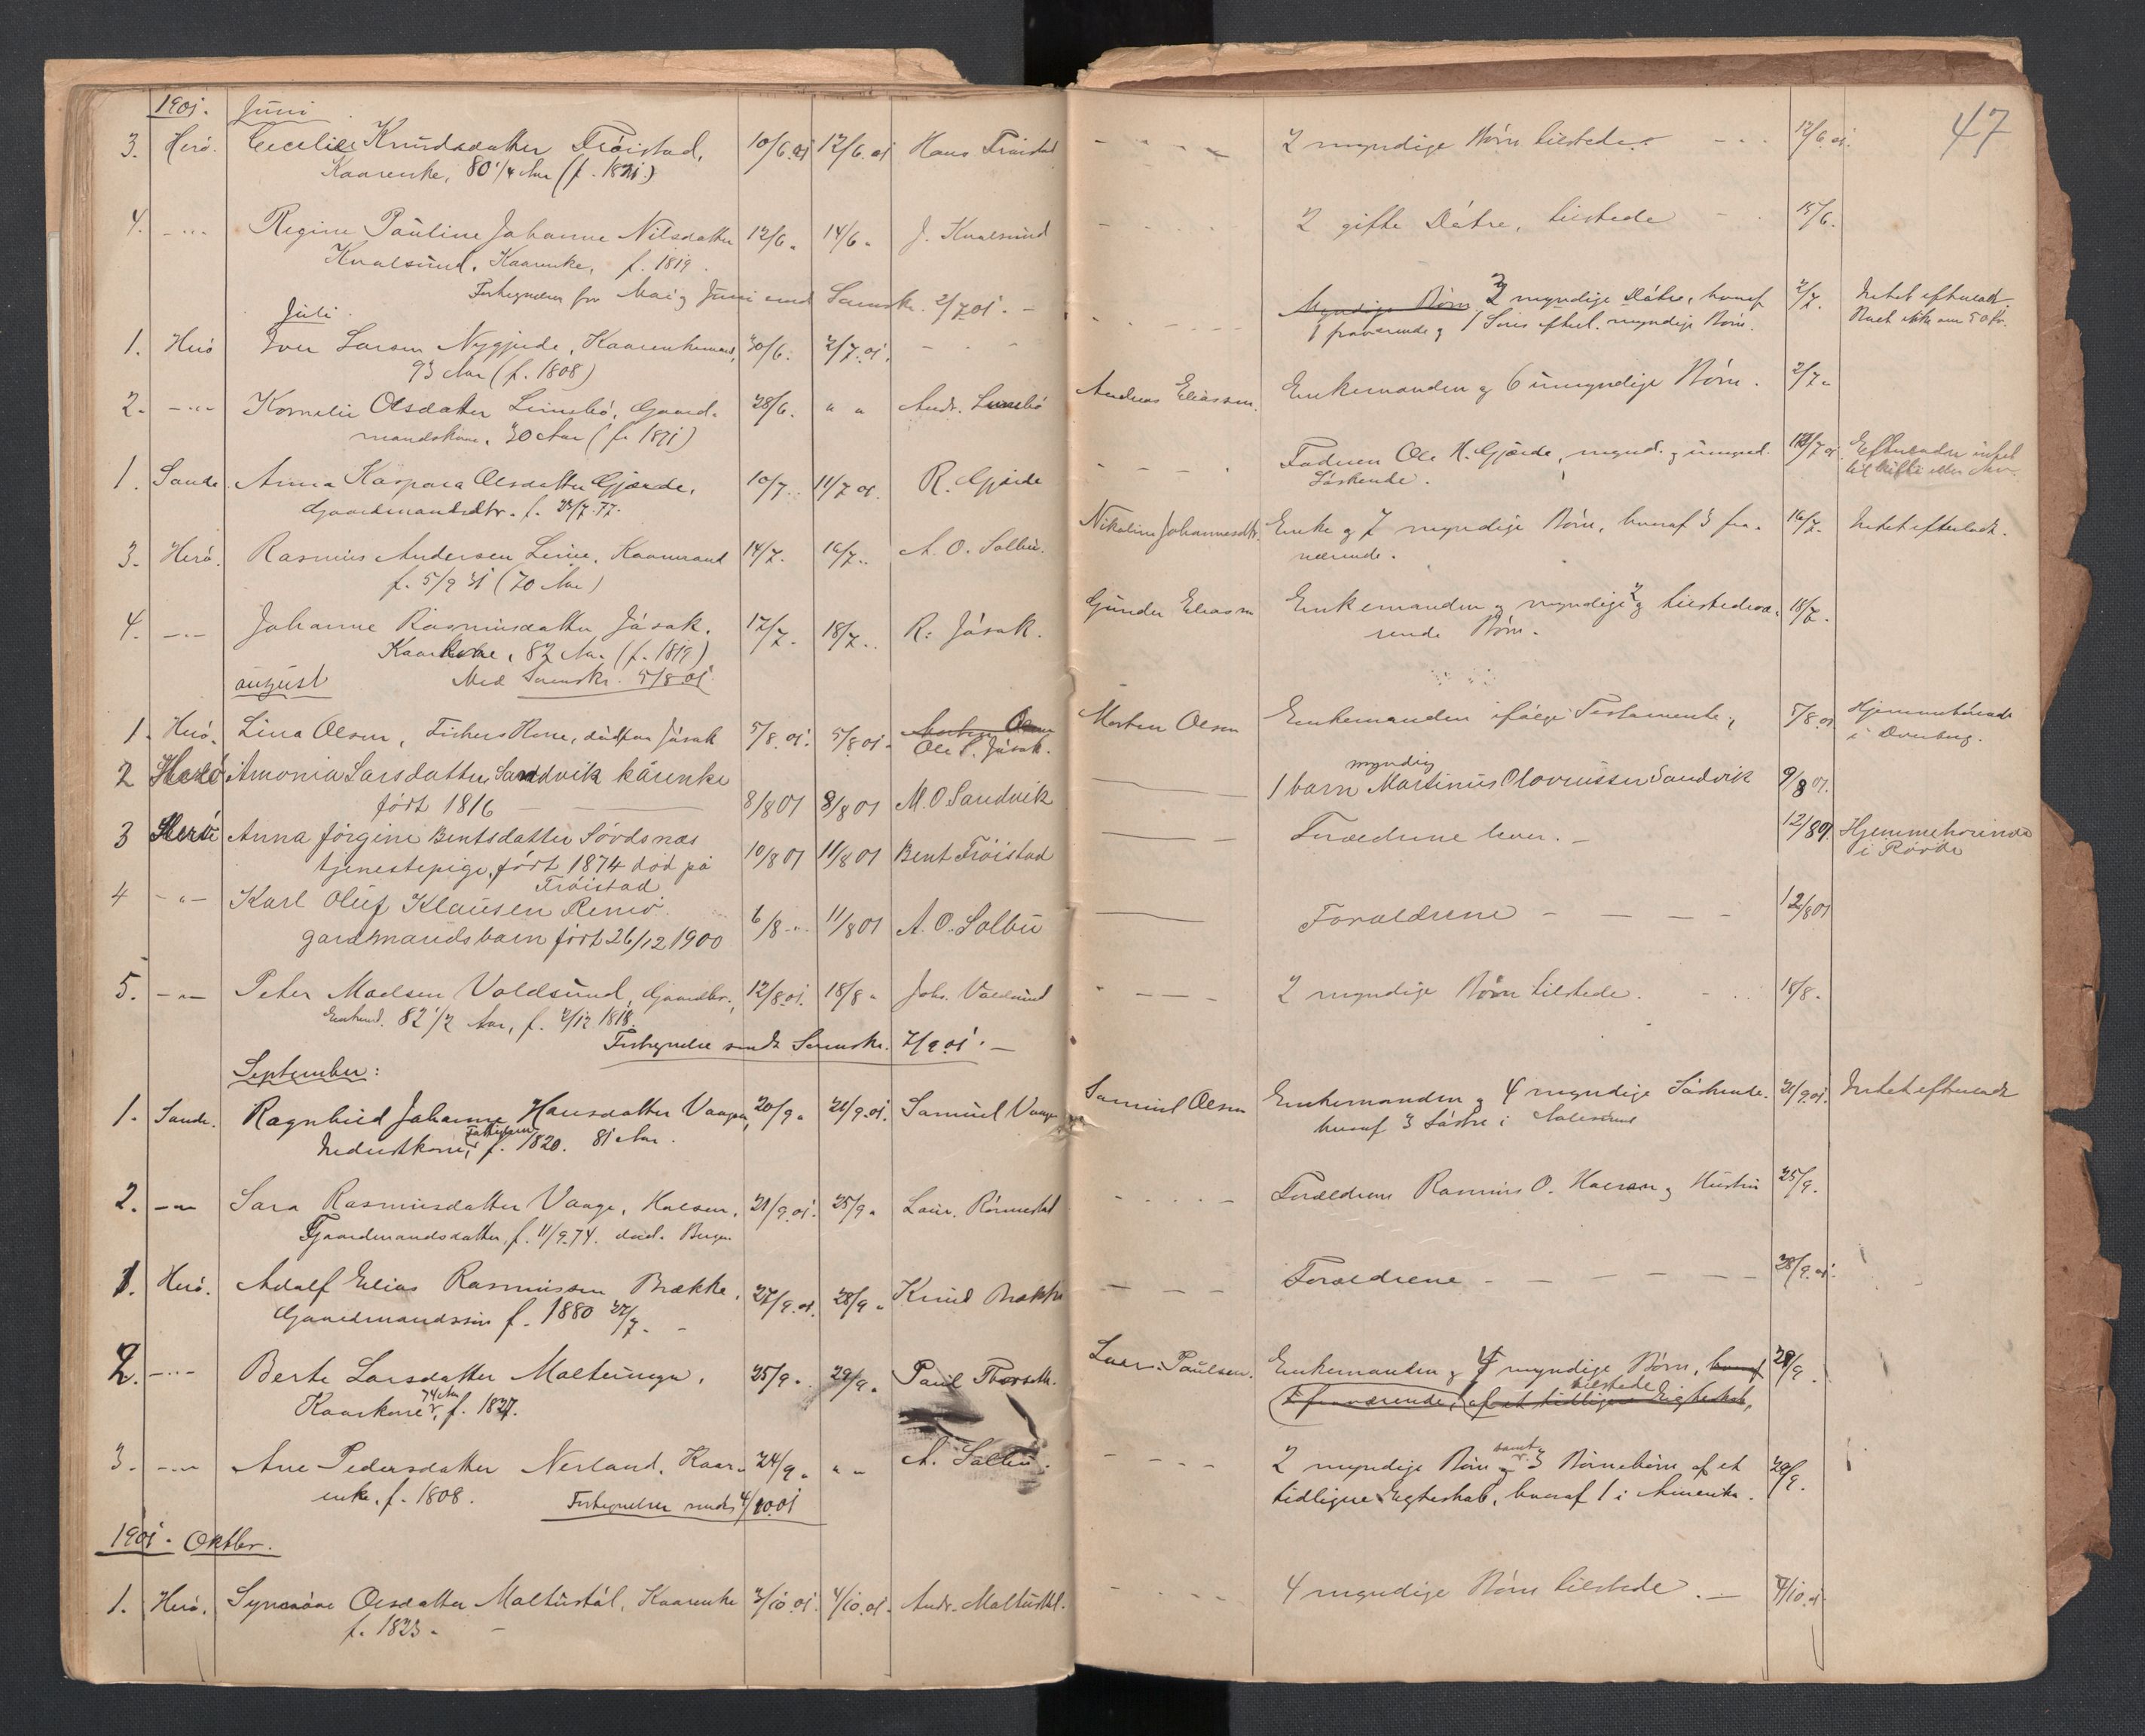 47
1901. Juni
3. Herö. Cecilie Knudsdatter Fröistad, 10/6.01 12/6.01 Hans Fröistad - - - - 2 myndige Börn tilstede. - - - 12/6.01.
Kaarenke, 80 1/4 Aar (f. 1821)
4. -"- Regine Pauline Johanne Nilsdatter 12/6. 14/6. J. Kvalsund - - - - 2 gifte Døtre, tilstede - - 15/6.
Kvalsund, Kaarenke, f. 1819.
Fortegnelse for Mai og Juni sendt Sorensk. 2/7 01. -
Juli.
1. Herö Iver Larsen Nygjerde, Kaarenkemand, 30/6. 2/7.01. - - - - - - Myndige Börn 2 myndige Døtre, hvoraf 2/7. Intet efterladt.
93 Aar (f. 1808) 1 fraværende og 1 Söns efterl. myndige Börn. Boet ikke over 50 Kr.
2. -"- Kornelie Olsdatter Leinebö, Gaard- 28/6. " " Andr. Leinebö Andreas Eliassen. Enkemanden og 6 umyndige Börn. 2/7.
mandskone, 30 Aar (f. 1871)
1. Sande. Anna Kaspara Olsdatter Gjærde, 10/7. 11/7 01. R. Gjerde - - - - Faderen Ole H. Gjærde, mynd. og umynd. 12/7 01 Efterlader intet
Gaardmandsdtr. f. 23/7.77. Söskende. til skifte eller Arv.
3. Herö. Rasmus Andersen Leine, Kaarmand 14/7. 16/7. A. O. Solbu. Nikoline Johannesdtr. Enke og 7 myndige Börn, hvoraf 3 fra- 16/7. Intet efterladt.
f. 5/9 31 (70 Aar) værende.
4. -"- Johanne Rasmusdatter Jösok. 17/7. 18/7. R. Jösok. Gunder Eliassen Enkemanden og myndige 2 og tilstedevæ- 18/7.
Kaarkone, 82 Aar (f. 1819) rende Börn.
August Med Sorenskr. 5/8 01.
1. Herö. Lina Olsen, Fiskers Kone, död paa Jösok 5/8.01. 5/8 01. Morten Olsen Morten Olsen Enkemanden ifölge Testamente, 5/8.01 Hjemmehörende
Ole P. Jösok. i Overberg.
2 Herö Amonia Larsdatter Sandvik kårenke 8/8 01 8/8 01 M. O Sandvik 1 barn myndig Martinus Olovaussen Sandvik 9/8 01.
født 1816
3 Herö Anna Jörgine Bentsdatter Sövdsnæs 10/8 01 11/8 01 Bent Fröistad Forældrene lever. - 12/8 01. Hjemmehörende
tjenestepige, født 1874 död på i Rovde
Fröistad
4 -"- Karl Oluf Klausen Remö. 6/8 -"- 11/8 01 A. O. Solbu Forældrene - - - - 12/8 01
gardmandsbarn født 26/12 1900
5. -"- Peter Madsen Voldsund, Gaardbr. 12/8.01. 18/8. Johs. Voldsund - - - - 2 myndige Börn tilstede. - - 18/8.
Enkemd. 82 1/2 Aar, f. 2/12 1818.
Fortegnelse sendt Sorenskr. 7/9 01. -
September:
1. Sande. Ragnhild Johanne Hansdatter Vaagen, 20/9. 21/9.01. Samuel Vaagen Samuel Olsen Enkemanden og 4 myndige Söskende. 21/9.01. Intet efterladt
Inderstkone, Fattiglem f. 1820. 81 Aar. hvoraf 3 Søstre i Aalesund
2. -"- Sara Rasmusdatter Vaage, Halsen, 21/9.01. 25/9. Laur. Rönnestad - - - - - Forældrene Rasmus O. Halsen og Hustru 25/9.
Gaardmandsdatter, f. 11/9.74. död i Bergen
1. Herö. Adolf Elias Rasmussen Brække, 27/9.01. 28/9. Knud Brække - - - Forældrene - - - - - 28/9.01.
Gaardmandssön f. 1880 27/7. -
2. -"- Berte Larsdatter Moltuungen, 25/9. 29/9. Paul Thorseth. Laur. Paulsen. Enkemanden og 4 myndige Börn, hvoraf 29/9.
Kaarkone, 74 Aar f. 1827. 1 fraværende, tilstede af et tidligere Egteskab,
3. -"- Ane Pedersdatter Nerland, Kaar- 24/9. " " A. Solbu. - - - - 2 myndige Börn samt 3 Børnebörn af et 29/9.
enke, f. 1808. Fortegnelse sendt 4/10 01 tidligere Egteskab, hvoraf 1 i Amerika.
1901. Oktbr.
1. Herö. Synnöve Olsdatter Moltustöl, Kaarenke 3/10.01. 4/10.01. Andr. Moltustöl. - - - - 4 myndige Börn tilstede. - 4/10.01
f. 1823. -